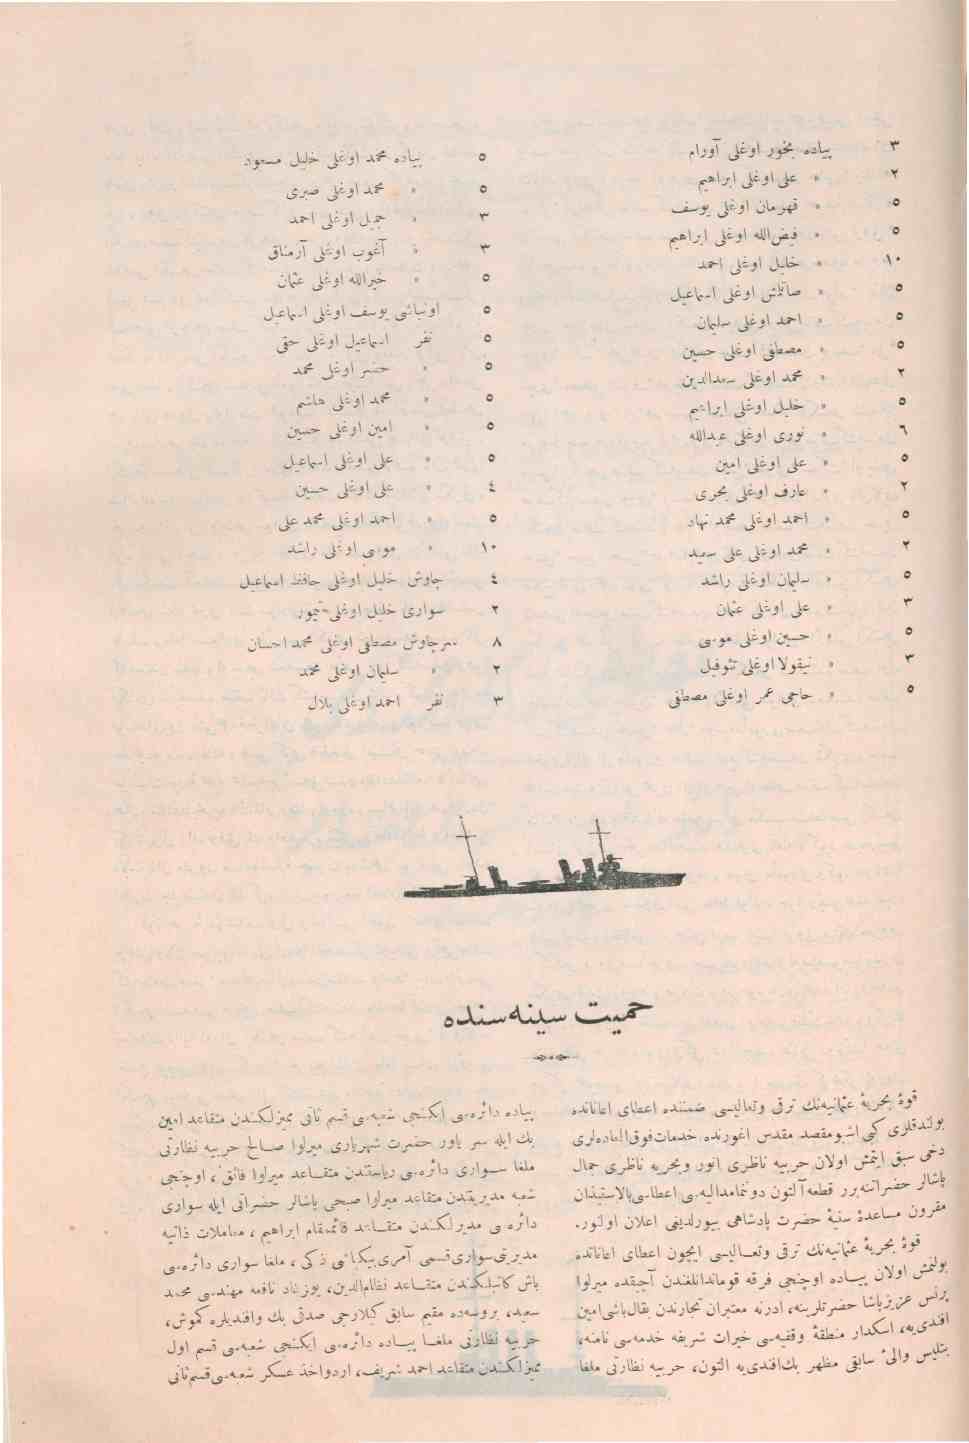 ٣ پیاده بخور اوغلی آورام
٢ » علی اوغلی ابراهیم
٥ » قهرمان اوغلی یوسف
٥ » فیض‌الله اوغلی ابراهیم
١٠ » خلیل اوغلی احمد
٥ » صاتلمش اوغلی اسماعیل
٥ » احمد اوغلی سلیمان
٥ » مصطفی اوغلی حسین
٢ » محمد اوغلی سعدالدین
٥ » خلیل اوغلی ابراهیم
٦ » نوری اوغلی عبدالله
٥ » علی اوغلی امین
٢ » عارف اوغلی بحری
٥ » احمد اوغلی محمد نهاد
٢ » محمد اوغلی علی سعید
٥ » سلیمان اوغلی راشد
٣ » علی اوغلی عثمان
٥ » حسین اوغلی موسی
٣ » نیقولا اوغلی تئوفیل
٥ » حاجی عمر اوغلی مصطفی
٥ پیاده محمد اوغلی خلیل مسعود
٥ » محمد اوغلی صبری
٣ » جمیل اوغلی احمد
٣ » آغوب اوغلی آرمناق
٥ » خیرالله اوغلی عثمان
٥ اونباشی یوسف اوغلی اسماعیل
٥ نفر اسماعیل اوغلی حقی
٥ » خضر اوغلی محمد
٥ » محمد اوغلی هاشم
٥ » امین اوغلی حسین
٥ » علی اوغلی اسماعیل
٤ » علی اوغلی حسین
٥ » احمد اوغلی محمد علی
١٠ » موسی اوغلی راشد
٤ چاوش خلیل اوغلی حافظ اسماعیل
٢ سواری خلیل اوغلی تیمور
٨ سرچاوش مصطفی اوغلی محمد احسان
٢ » سلیمان اوغلی محمد
٣ نفر احمد اوغلی بلال
حمیت سینه‌سنده
قوۀ بحریۀ عثمانیه‌نك ترقی وتعالیسی ضمننده اعطای اعاناتده
بولندقلری کبی اشبو مقصد مقدس اغورنده خدمات فوق‌العاده‌لری
دخی سبق ایتمش اولان حربیه ناظری انور وبحریه ناظری جمال
پاشالر حضراتنه برر قطعه آلتون دوننما مدالیه‌سی اعطاسی بالاستیذان
مقرون مساعدۀ سنیۀ حضرت پادشاهی بیورلدیغی اعلان اولنور.
قوۀ بحریۀ عثمانیه‌نك ترقی وتعالیسی ایچون اعطای اعاناتده
بولنمش اولان پیاده اوچنجی فرقه قوماندانلغندن آچیقده میرلوا
پرنس عزیز پاشا حضرتلرینه، ادرنه معتبران تجارندن بقال باشی امین
افندی‌یه، اسکدار منطقۀ وقفیه‌سی خیرات شریفه خدمه‌سی نامنه،
بتلیس والیٔ سابقی مظهر بك افندی‌یه التون، حربیه نظارتی ملغا
پیاده دائره‌سی ایکنجی شعبه‌سی قسم ثانی ممیزلکندن متقاعد امین
بك ایله سر یاور حضرت شهریاری میرلوا صالح حربیه نظارتی
ملغا سواری دائره‌سی ریاستندن متقاعد میرلوا فائق، اوچنجی
شعبه مدیریتندن متقاعد میرلوا صبحی پاشالر حضراتی ایله سواری
دائره‌سی مدیرلکندن متقاعد قائمقام ابراهیم، معاملات ذاتیه
مدیریتی سواری قسمی آمری بیکباشی ذکی، ملغا سواری دائره‌سی
باش کاتبلکندن متقاعد نظام‌الدین، یوزغاد نافعه مهندسی محمد
سعید، بروسه‌ده مقیم سابق کیلارجی صدقی بك وافندیلره کموش،
حربیه نظارتی ملغا پیاده دائره‌سی ایکنجی شعبه‌سی قسم اول
ممیزلکندن متقاعد احمد شریف، اردو اخذ عسکر شعبه‌سی قسم ثانی